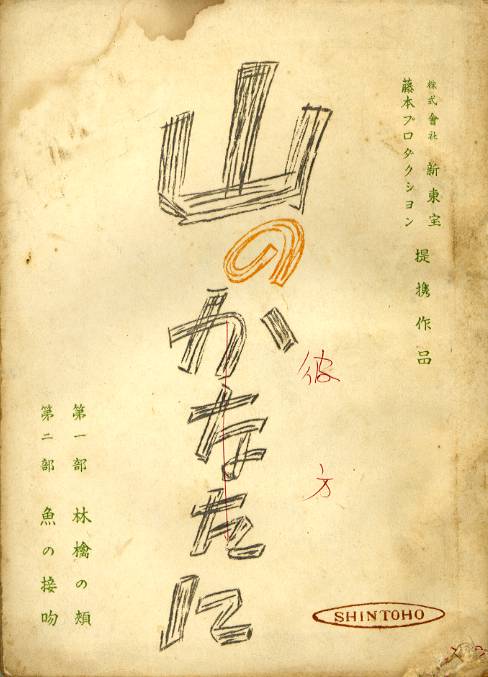 株式會社 新東宝
藤本プロダクション
提携作品
山のかなたに
彼方
第一部 林檎の頬
第二部 魚の接吻
SHINTOHO